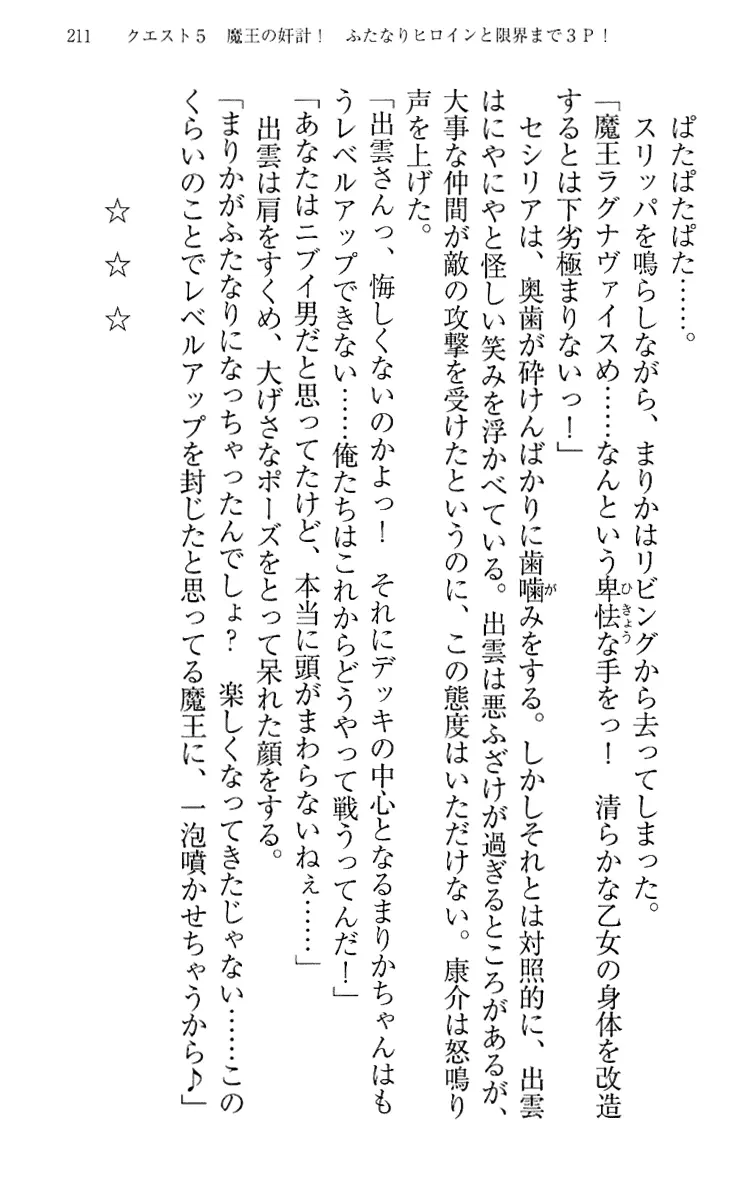 211　クエスト５　魔王の奸計！　ふたなりヒロインと限界まで３Ｐ！
ぱたぱたぱた……。
スリッパを鳴らしながら、まりかはリビングから去ってしまった。
「魔王ラグナヴァイスめ……なんという卑怯な手をっ！　清らかな乙女の身体を改造
するとは下劣極まりないっ！」
セシリアは、奥歯が砕けんばかりに歯噛みをする。しかしそれとは対照的に、出雲
はにやにやと怪しい笑みを浮かべている。出雲は悪ふざけが過ぎるところがあるが、
大事な仲間が敵の攻撃を受けたというのに、この態度はいただけない。康介は怒鳴り
声を上げた。
「出雲さんっ、悔しくないのかよっ！　それにデッキの中心となるまりかちゃんはも
うレベルアップできない……俺たちはこれからどうやって戦うってんだ！」
「あなたはニブイ男だと思ってたけど、本当に頭がまわらないねぇ……」
出雲は肩をすくめ、大げさなポーズをとって呆れた顔をする。
「まりかがふたなりになっちゃったんでしょ？　楽しくなってきたじゃない……この
くらいのことでレベルアップを封じたと思ってる魔王に、一泡噴かせちゃうから♪」
☆　☆　☆